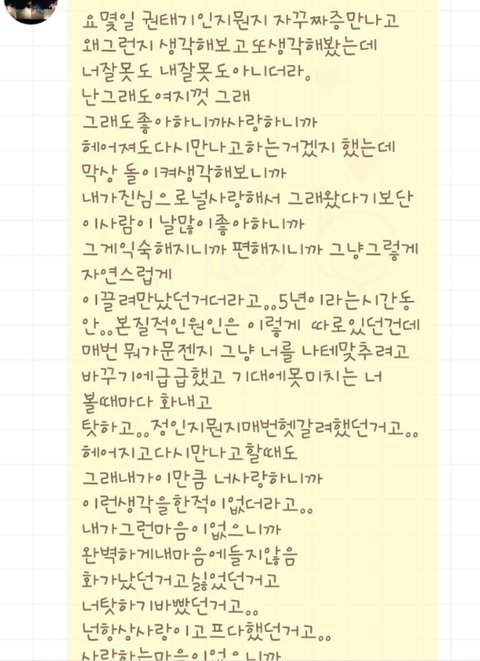 요몇일 권태기인지뭔지 자꾸짜증만나고
왜그런지 생각해보고또생각해봤는데
너잘못도 내잘못도아니더라。
난그래도여지껏 그래
그래도좋아하니까사랑하니까
헤어져도다시만나고하는거겠지 했는데
막상 돌이켜생각해보니까
내가진심으로널사랑해서 그래왔다기보단
이사람이 날많이좋아하니까
그게익숙해지니까 편해지니까 그냥그렇게
자연스럽게
이끌려만났던거더라고。。5년이라는시간동
안。。본질적인원인은 이렇게 따로있던건데
매번 뭐가문젠지 그냥 너를 나테맞추려고
바꾸기에급급했고 기대에못미치는 너
볼때마다 화내고
탓하고。。정인지뭔지매번헷갈려했던거고。。
헤어지고다시만나고할때도
그래내가이만큼 너사랑하니까
이런생각을한적이없더라고。。
내가그런마음이없으니까
완벽하게내마음에들지않음
화가났던거고싫었던거고
너탓하기바빴던거고。。
넌항상사랑이고프다했던거고。。
사랑하는마음이없으니까